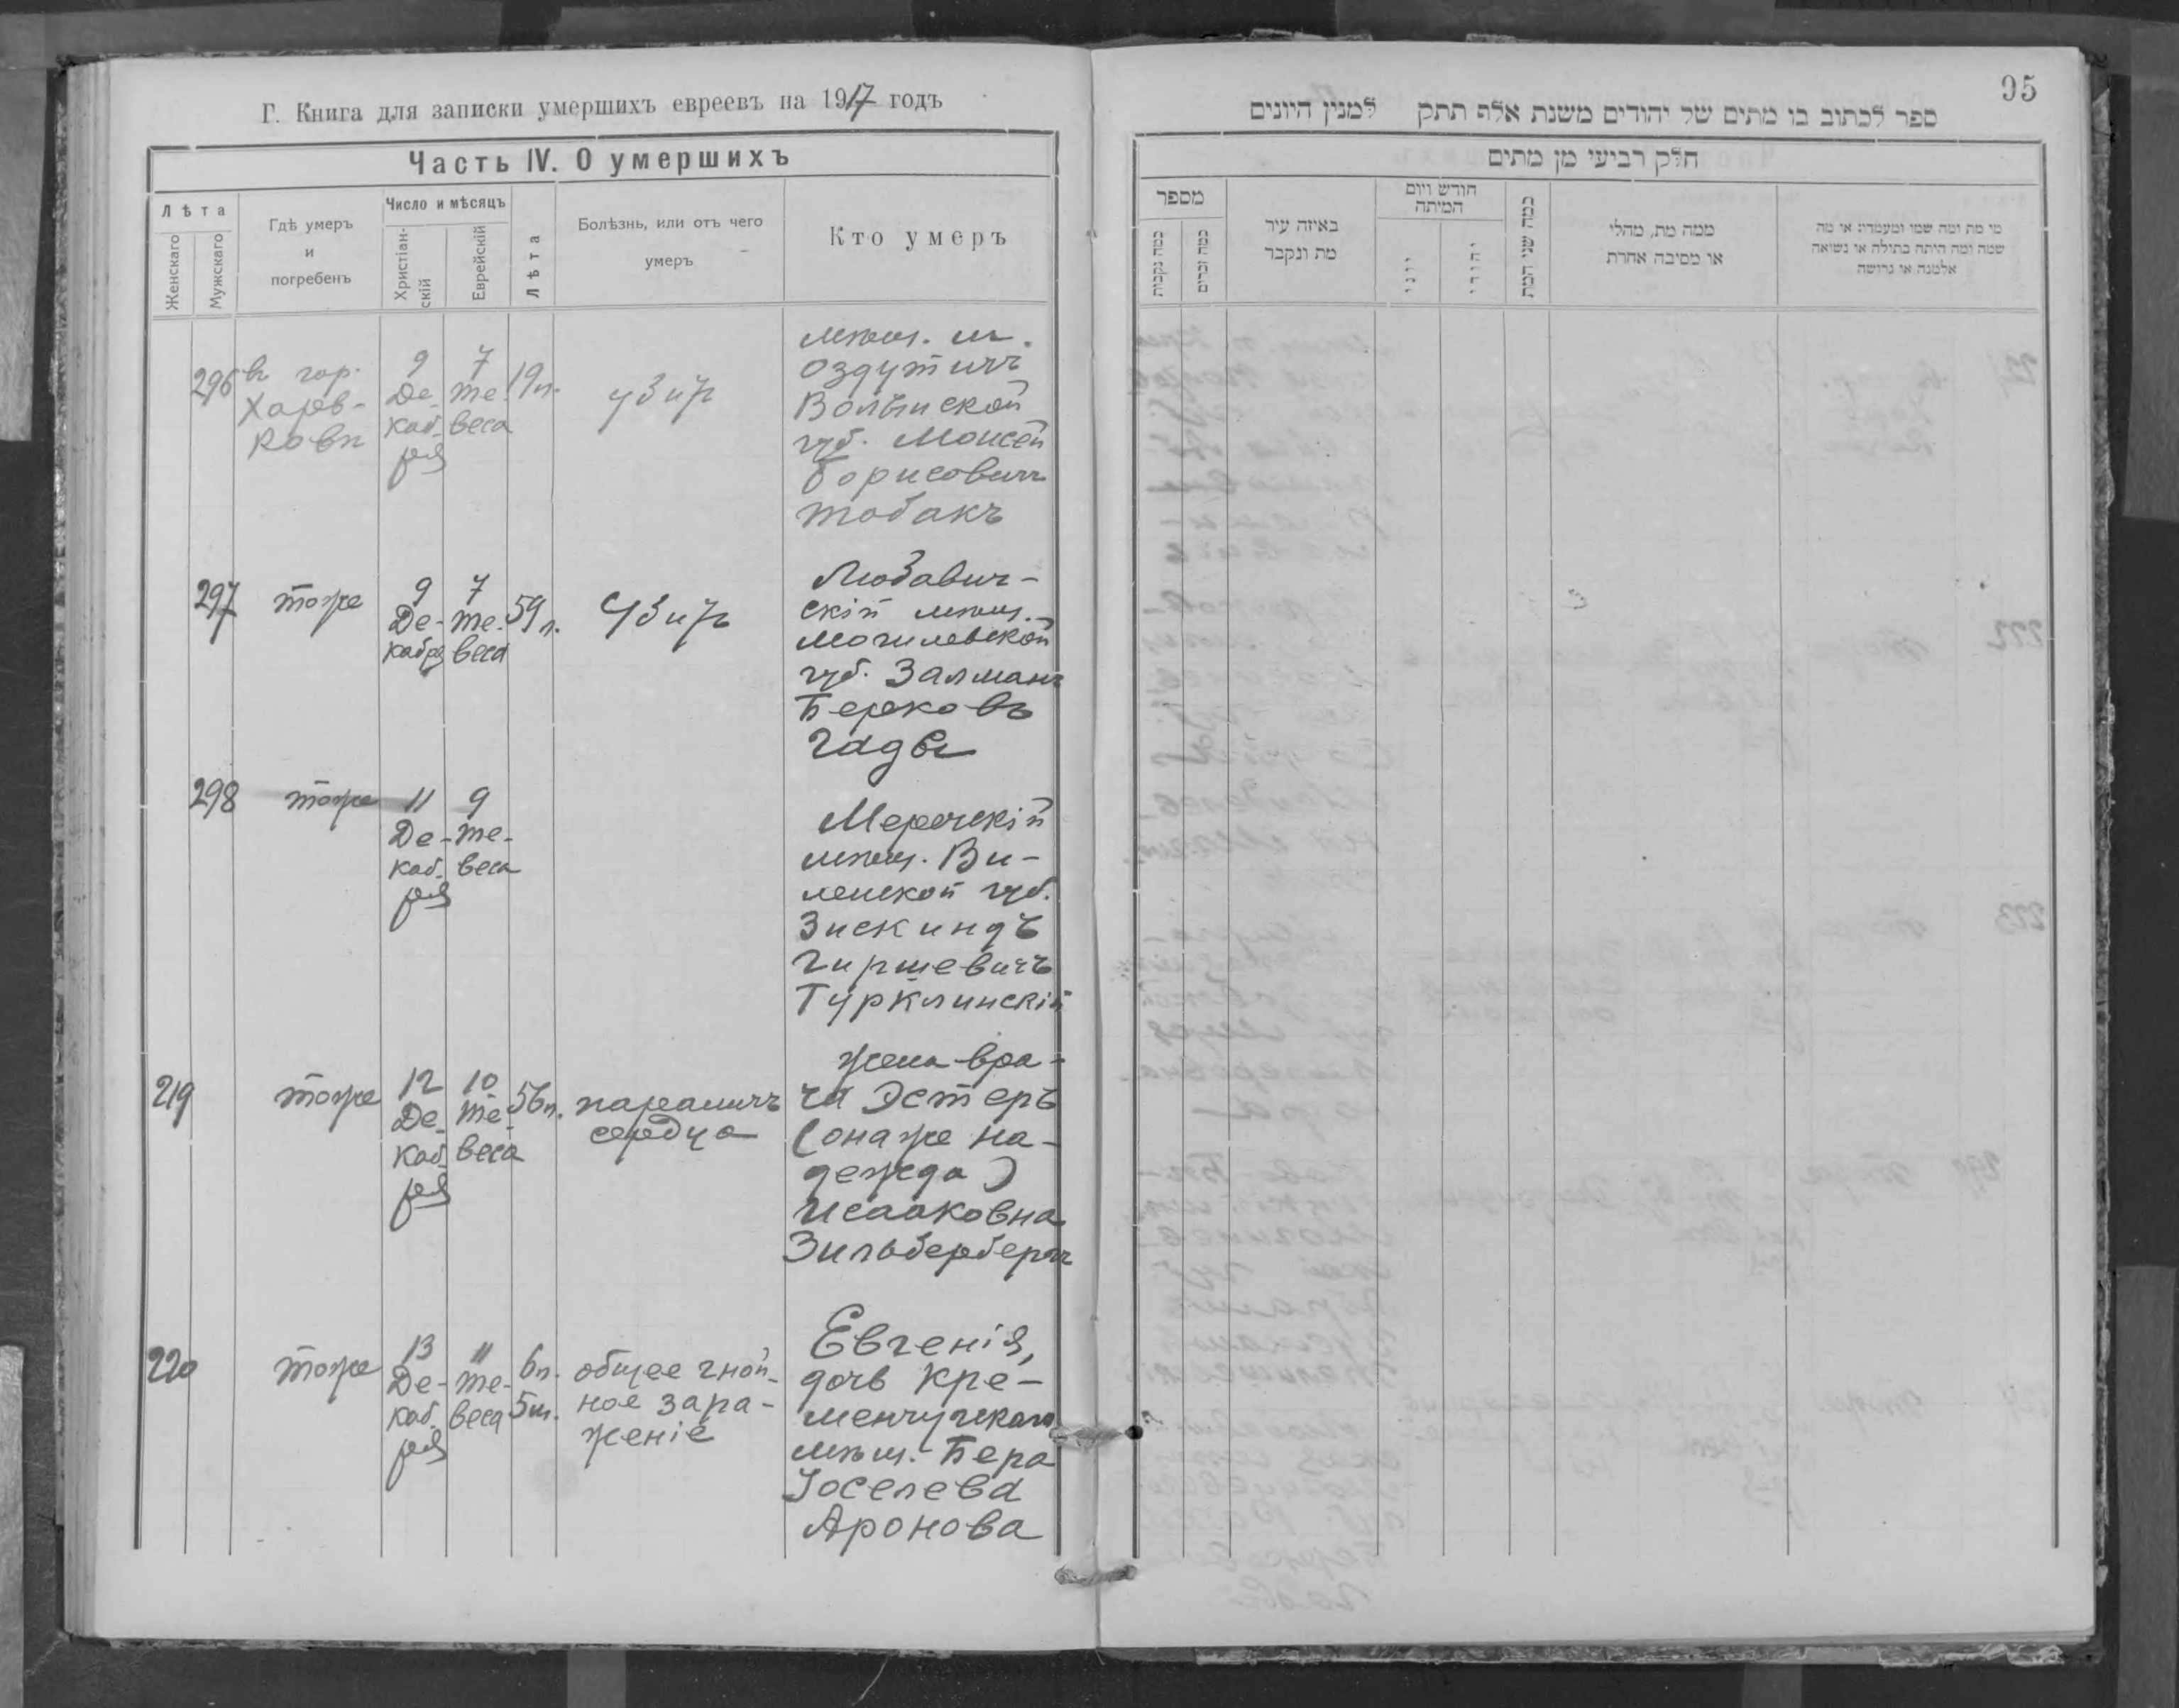 Г. Книга для записки умершихъ евреевъ на 1917 годъ
Часть IV. О умершихъ
Лѣта
Женскаго
Мужскаго
Гдѣ умеръ
и
погребенъ
Число и мѣсяцъ
Христіан-
скій
Еврейскій
Лѣта
Болѣзнь, или отъ чего
умеръ
Кто умеръ
296
въ гор.
Харь-
ковѣ
9
Де-
каб-
ря
7
Те-
веса
19 л.
убитъ
мѣщ. м.
Оздутичъ
Волынской
губ. Моисей
Борисовичъ
Тобакъ
297
тоже
9
Де-
кабря
7
Те-
веса
59 л.
Убитъ
Любавич-
скій мѣщ.
Могилевской
губ. Залманъ
Берковъ
298
тоже
11
Де-
каб-
ря
9
Те-
веса
Меречскій
мѣщ. Ви-
ленской губ.
Зискиндъ
Гиршевичъ
Турклинскій
219
тоже
12
Де-
каб-
ря
10
Те-
веса
56 л.
параличъ
сердца
Жена вра-
ча Эстеръ
(она же На-
дежда)
Исааковна
Зильбербергъ
220
тоже
13
Де-
каб-
ря
11
Те-
веса
6 л.
5 м.
общее гной-
ное зара-
женіе
Евгенія,
дочь Кре-
менчугскаго
мѣщ. Бера
Іоселева
Аронова
95
ספר לכתוב בו מתים של יהודים משנת אלף תתק למנין היונים
חלק רביעי מן מתים
מספר
כמה נקבות
כמה זכרים
באיזה עיר
מת ונקבר
חודש ויום
המיתה
יוני
יהודי
כמה שני המת
ממה מת, מחלי
או מסיבה אחרת
מי מת ומה שמו ומעמדו או מה
שמה ומה היתה בתולה או נשואה
אלמנה או גרושה